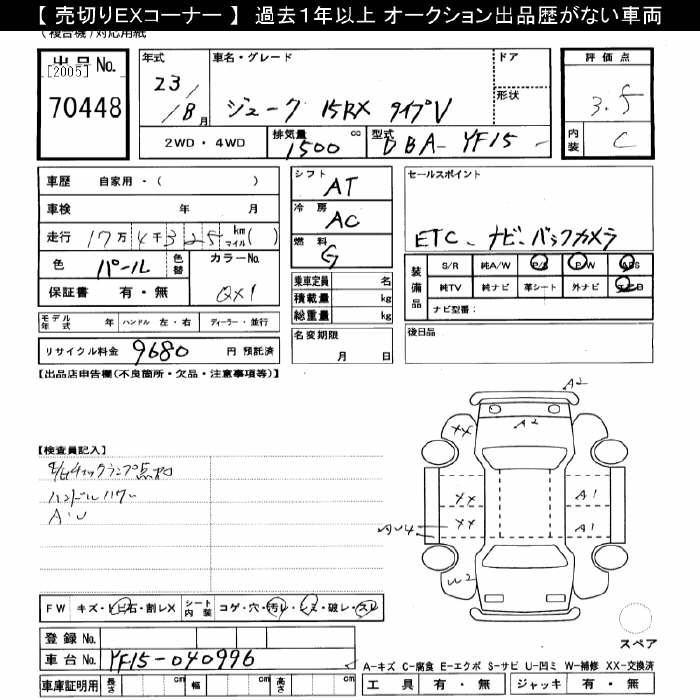 【 売切りEXコーナー 】 過去１年以上 オークション出品歴がない車両
(複合機)対応用紙
出品 No.
[2005]
70448
年式
23/
/8月
車名・グレード
ジューク 15RX タイプV
ドア
形状
評価点
3.5
内装
C
2WD・4WD
排気量
1500 cc
型式
DBA-YF15
車歴 自家用・( )
車検 年 月
走行 17万4千325 km マイル( )
色 パール 色替
カラーNo.
QX1
保証書 有・無
シフト
AT
冷房
AC
燃料
G
乗車定員 名
積載量 kg
総重量 kg
セールスポイント
ETC、ナビ、バックカメラ
装備品
S/R 純A/W P/S P/W ABS
純TV 純ナビ 革シート 外ナビ エアB
ナビ型番:
モデル年式 年 ハンドル 左・右 ディーラー・並行
リサイクル料金 9680 円 預託済
名変期限
月 日
後日品
【出品店申告欄(不良箇所・欠品・注意事項等)】
【検査員記入】
チェックランプ点灯
ハンドル
A・U
A2
A2
XX
XX
XX
A1
A1
AU4
W2
FW キズ・ヒビ石・割レX
シート内装 コゲ・穴・汚レ・シミ・破レ・スレ
スペア
登録 No.
車台 No. YF15-040996
車庫証明用 長さ cm 幅 cm 高さ cm
A-キズ C-腐食 E-エクボ S-サビ U-凹ミ W-補修 XX-交換済
工具 有・無 ジャッキ 有・無